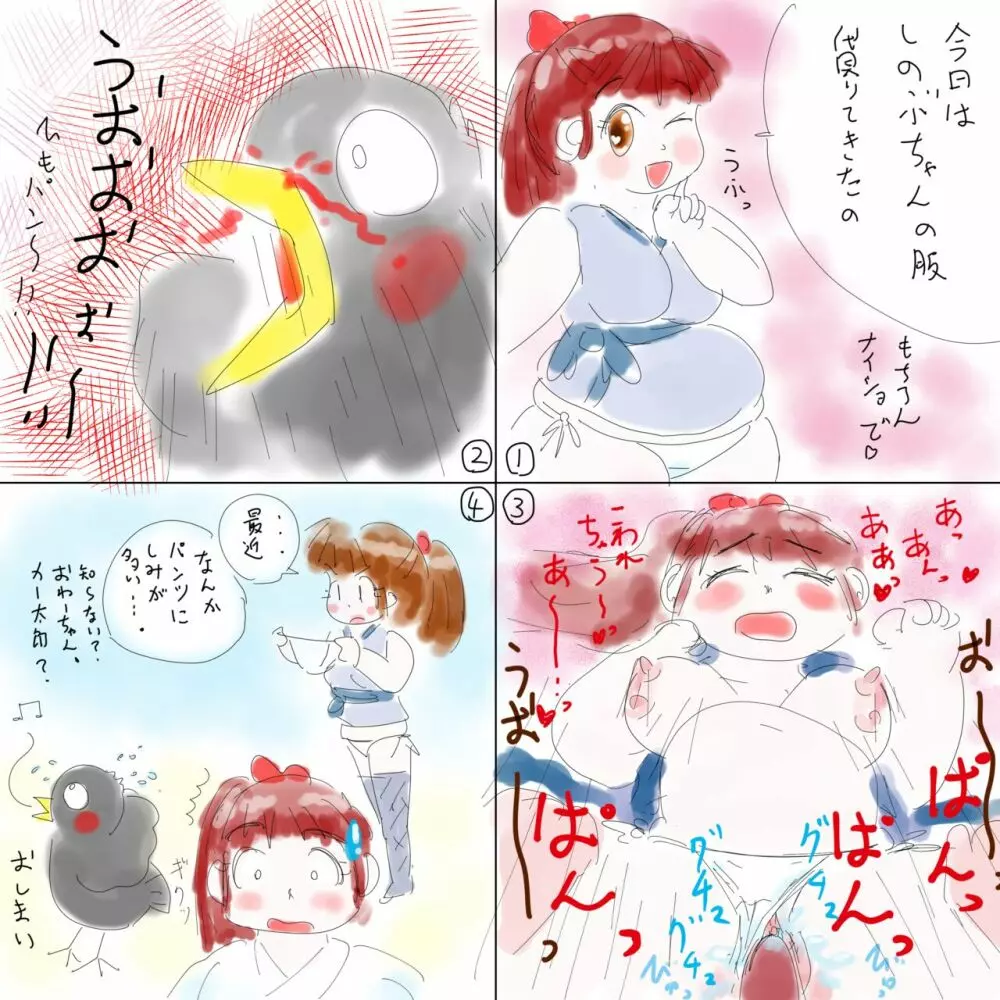 今日は
しのぶちゃんの服
借りてきたの
もちろん
ナイショで♡
うふっ
①
うおおおぉ〜ッ
②
あっ
あんっ♥
ああっ♥
こわれ
ちゃう〜♥
あ〜…っ♥
お〜っ
うお〜っ
ぱんっ
ぱんっ
ぱんっ
グチュ
グチュ
③
最近…
なんか
パンツに
しみが
多い…
知らない?
おわーちゃん、
カー太郎?
♪
ギクッ
おしまい
④